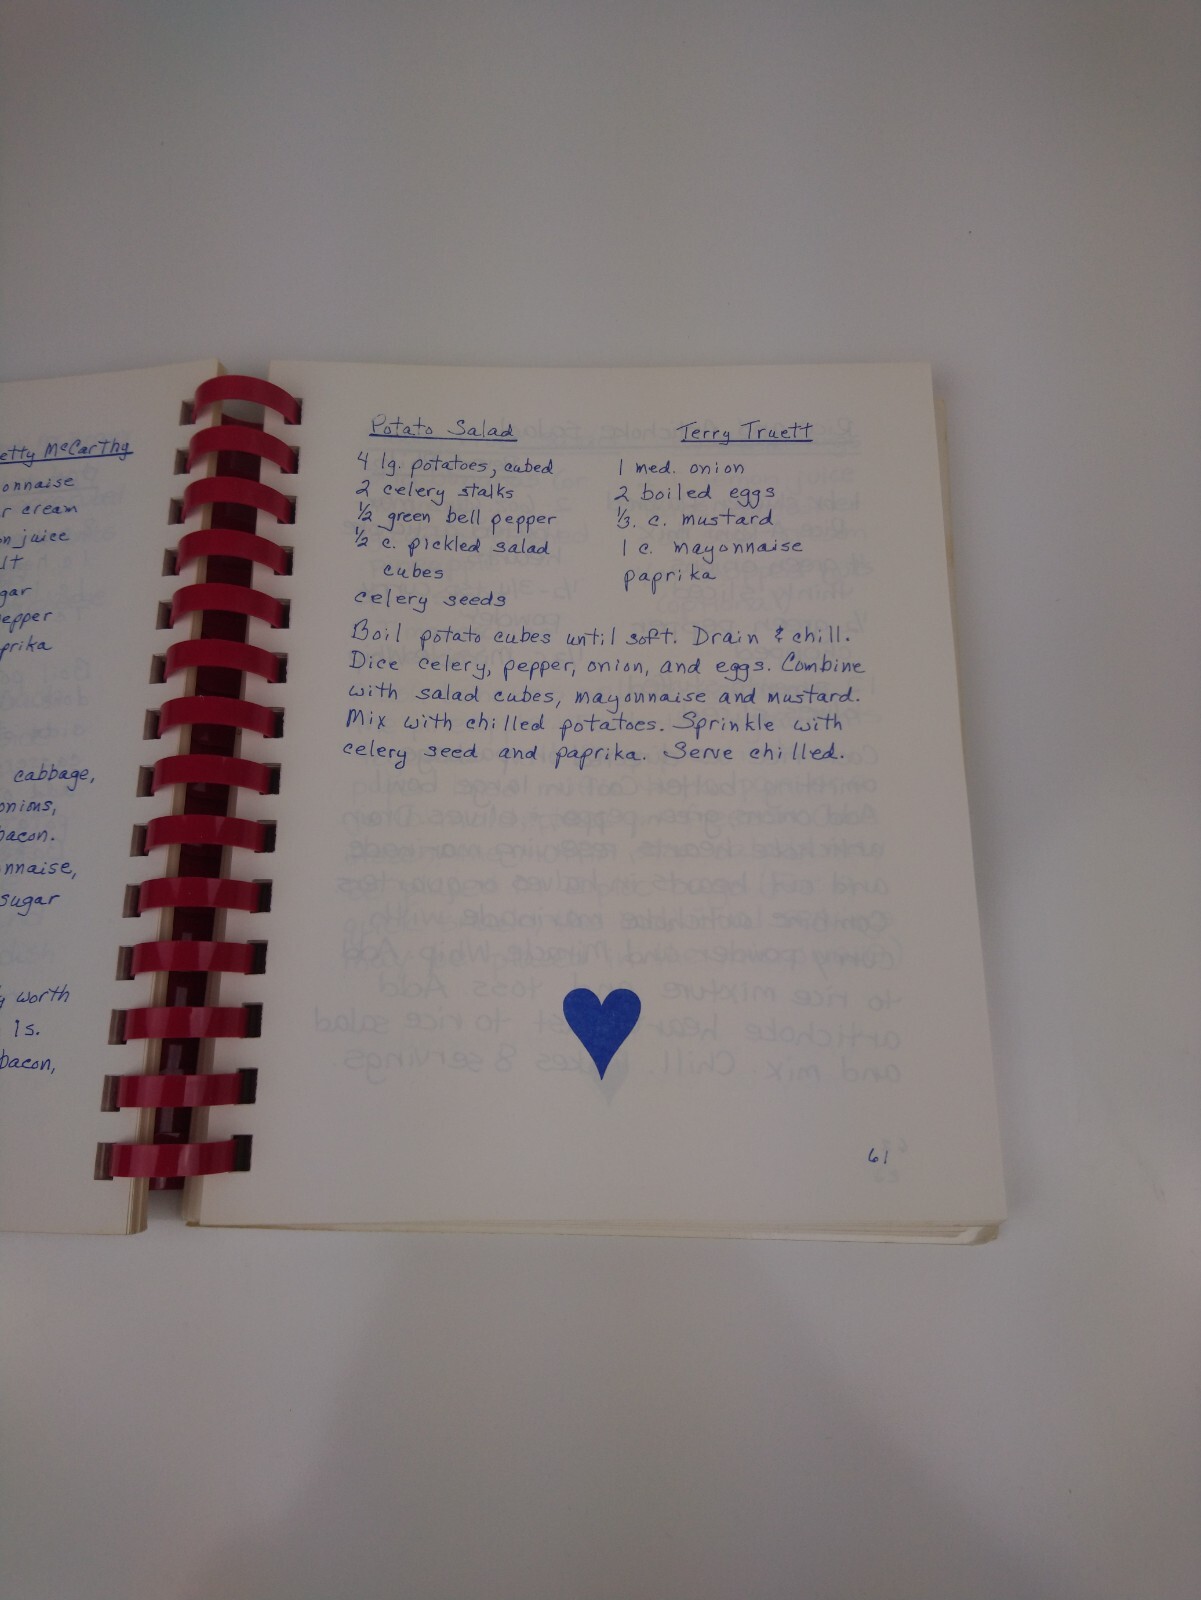 etty McCarthy
onnaise
r cream
on juice
lt
gar
epper
prika
cabbage,
onions,
bacon.
nnaise,
sugar
y worth
1s.
bacon,
Potato Salad Terry Truett
4 lg. potatoes, cubed
2 celery stalks
½ green bell pepper
½ c. pickled salad
cubes
celery seeds
1 med. onion
2 boiled eggs
⅓. c. mustard
1 c. mayonnaise
paprika
Boil potato cubes until soft. Drain & chill.
Dice celery, pepper, onion, and eggs. Combine
with salad cubes, mayonnaise and mustard.
Mix with chilled potatoes. Sprinkle with
celery seed and paprika. Serve chilled.
61